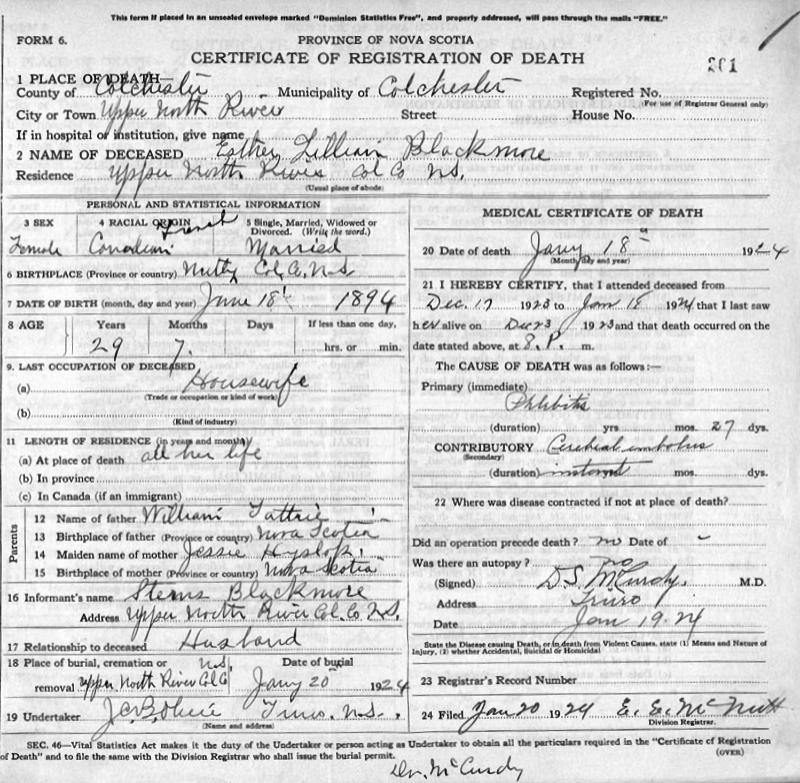 This form if placed in an unsealed envelope marked "Dominion Statistics Free", and properly addressed, will pass through the mails "FREE."
FORM 6.
PROVINCE OF NOVA SCOTIA
CERTIFICATE OF REGISTRATION OF DEATH
201
1 PLACE OF DEATH—
County of Colchester Municipality of Colchester Registered No.
(For use of Registrar General only)
City or Town Upper North River Street House No.
If in hospital or institution, give name
2 NAME OF DECEASED Esther Lillian Blackmore
Residence Upper North River Col Co N.S.
(Usual place of abode)
PERSONAL AND STATISTICAL INFORMATION
3 SEX 4 RACIAL ORIGIN 5 Single, Married, Widowed or Divorced. (Write the word.)
French
Female Canadian Married
6 BIRTHPLACE (Province or country) Nuttby Col. Co. N.S
7 DATE OF BIRTH (month, day and year) June 18 1894
8 AGE Years Months Days If less than one day,
29 7. hrs. or min.
9. LAST OCCUPATION OF DECEASED
(a) Housewife
(Trade or occupation or kind of work)
(b)
(Kind of industry)
11 LENGTH OF RESIDENCE (in years and months)
(a) At place of death all her life
(b) In province
(c) In Canada (if an immigrant)
Parents
12 Name of father William Tattrie
13 Birthplace of father (Province or country) Nova Scotia
14 Maiden name of mother Jessie Hyslop
15 Birthplace of mother (Province or country) Nova Scotia
16 Informant's name Sterns Blackmore
Address Upper North River Col. Co. N.S.
17 Relationship to deceased Husband
18 Place of burial, cremation or removal N.S. Upper North River Col Co
Date of burial Jany 20 1924
19 Undertaker Truro. N.S.
(Name and address)
MEDICAL CERTIFICATE OF DEATH
20 Date of death Jany 18 1924
(Month, day and year)
21 I HEREBY CERTIFY, that I attended deceased from
Dec. 17 1923 to Jan 18 1924 that I last saw
her alive on Dec 23 1923 and that death occurred on the
date stated above, at 8. P. m.
The CAUSE OF DEATH was as follows:—
Primary (immediate)
Phlebitis
(duration) yrs mos. 27 dys.
CONTRIBUTORY Cerebral embolus
(Secondary)
(duration) instant mos. dys.
22 Where was disease contracted if not at place of death?
Did an operation precede death? no Date of -
Was there an autopsy? no
(Signed) D.S. McCurdy, M.D.
Address Truro
Date Jan 19. 24
State the Disease causing Death, or in death from Violent Causes, state (1) Means and Nature of
Injury, (2) whether Accidental, Suicidal or Homicidal
23 Registrar's Record Number
24 Filed Jan 20 1924 E. E. McNutt
Division Registrar.
(OVER)
SEC. 46—Vital Statistics Act makes it the duty of the Undertaker or person acting as Undertaker to obtain all the particulars required in the "Certificate of Registration
of Death" and to file the same with the Division Registrar who shall issue the burial permit.
Dr. McCurdy